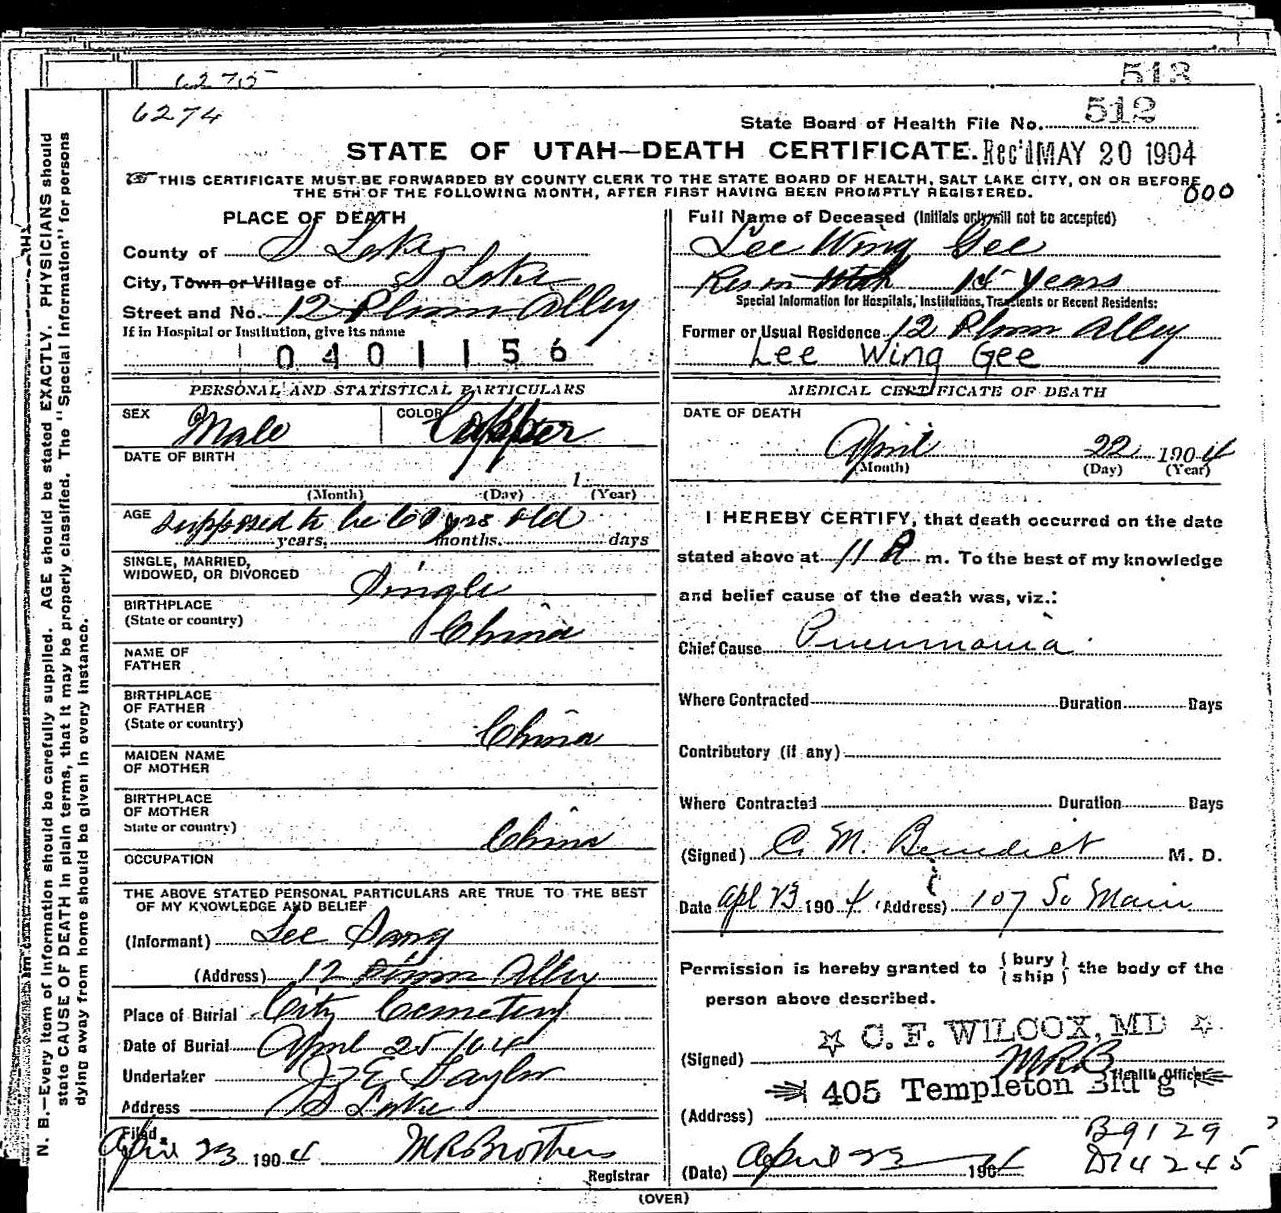 6275
513
6274
State Board of Health File No. 512
STATE OF UTAH—DEATH CERTIFICATE. Rec'd MAY 20 1904
THIS CERTIFICATE MUST BE FORWARDED BY COUNTY CLERK TO THE STATE BOARD OF HEALTH, SALT LAKE CITY, ON OR BEFORE
THE 5TH OF THE FOLLOWING MONTH, AFTER FIRST HAVING BEEN PROMPTLY REGISTERED.
000
N. B.—Every item of information should be carefully supplied. AGE should be stated EXACTLY. PHYSICIANS should
state CAUSE OF DEATH in plain terms, that it may be properly classified. The "Special Information" for persons
dying away from home should be given in every instance.
PLACE OF DEATH
County of S Lake
City, Town or Village of S Lake
Street and No. 12 Plum Alley
If in Hospital or Institution, give its name
0401156
PERSONAL AND STATISTICAL PARTICULARS
SEX Male COLOR Copper
DATE OF BIRTH
1
(Month) (Day) (Year)
AGE supposed to be 60 yrs old
years, months. days
SINGLE, MARRIED,
WIDOWED, OR DIVORCED Single
BIRTHPLACE
(State or country) China
NAME OF
FATHER
BIRTHPLACE
OF FATHER
(State or country) China
MAIDEN NAME
OF MOTHER
BIRTHPLACE
OF MOTHER
State or country) China
OCCUPATION
THE ABOVE STATED PERSONAL PARTICULARS ARE TRUE TO THE BEST
OF MY KNOWLEDGE AND BELIEF
(Informant) Lee Sang
(Address) 12 Plum Alley
Place of Burial City Cemetery
Date of Burial April 25 / 04
Undertaker Taylor
Address S Lake
Filed
April 23 1904 M R Brothers
Registrar
Full Name of Deceased (Initials only will not be accepted)
Lee Wing Gee
Res in Utah 15 Years
Special Information for Hospitals, Institutions, Transients or Recent Residents:
Former or Usual Residence 12 Plum Alley
Lee Wing Gee
MEDICAL CERTIFICATE OF DEATH
DATE OF DEATH
April 22 1904
(Month) (Day) (Year)
I HEREBY CERTIFY, that death occurred on the date
stated above at 11 P m. To the best of my knowledge
and belief cause of the death was, viz.:
Chief Cause Pneumonia
Where Contracted Duration Days
Contributory (if any)
Where Contracted Duration Days
(Signed) C. M. Benedict M. D.
Date Apl 23 1904 (Address) 107 So Main
Permission is hereby granted to { bury / ship } the body of the
person above described.
C. F. WILCOX, MD
(Signed) MRB Health Officer
405 Templeton Bld'g
(Address)
B9129
D14245
(Date) April 23 1904
(OVER)